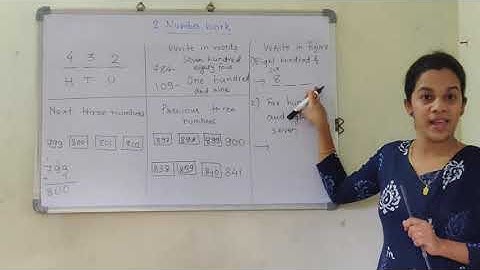 2 Number work
4 3 2
H T U
Write in words
784- Seven hundred
eighty four
109- One hundred
and nine
Write in figure
Eight hundred &
six
→ 8
2) Five hun
and
seven
→
Next three numbers
799 800 801 802
799
800
Previous three
numbers
897 898 899 900
838 839 840 841